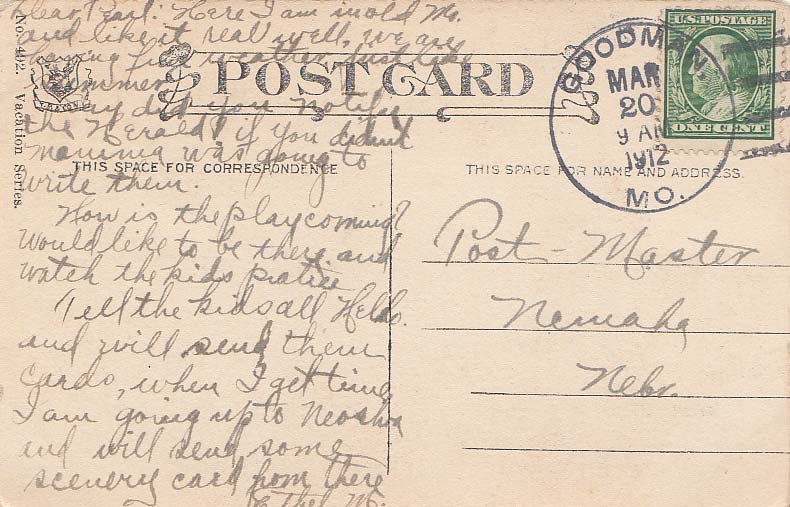 Dear Earl: Here I am in old Mo.
and like it real well, we are
having fine weather just like
summer.
POST CARD
did you notify
the Herald? if you didn't
mamma was going to
write them.
How is the play coming?
Would like to be there and
watch the kids pratice
Tell the kids all Hello.
and will send them
Cards, when I get time
I am going up to Neosho
and will send some
scenery card from there
Ethel M.
THIS SPACE FOR CORRESPONDENCE
No. 402. Vacation Series.
GOODMAN,
MAR
20
9 AM
1912
MO.
U.S. POSTAGE
ONE CENT
THIS SPACE FOR NAME AND ADDRESS.
Post-Master
Nemaha
Nebr.